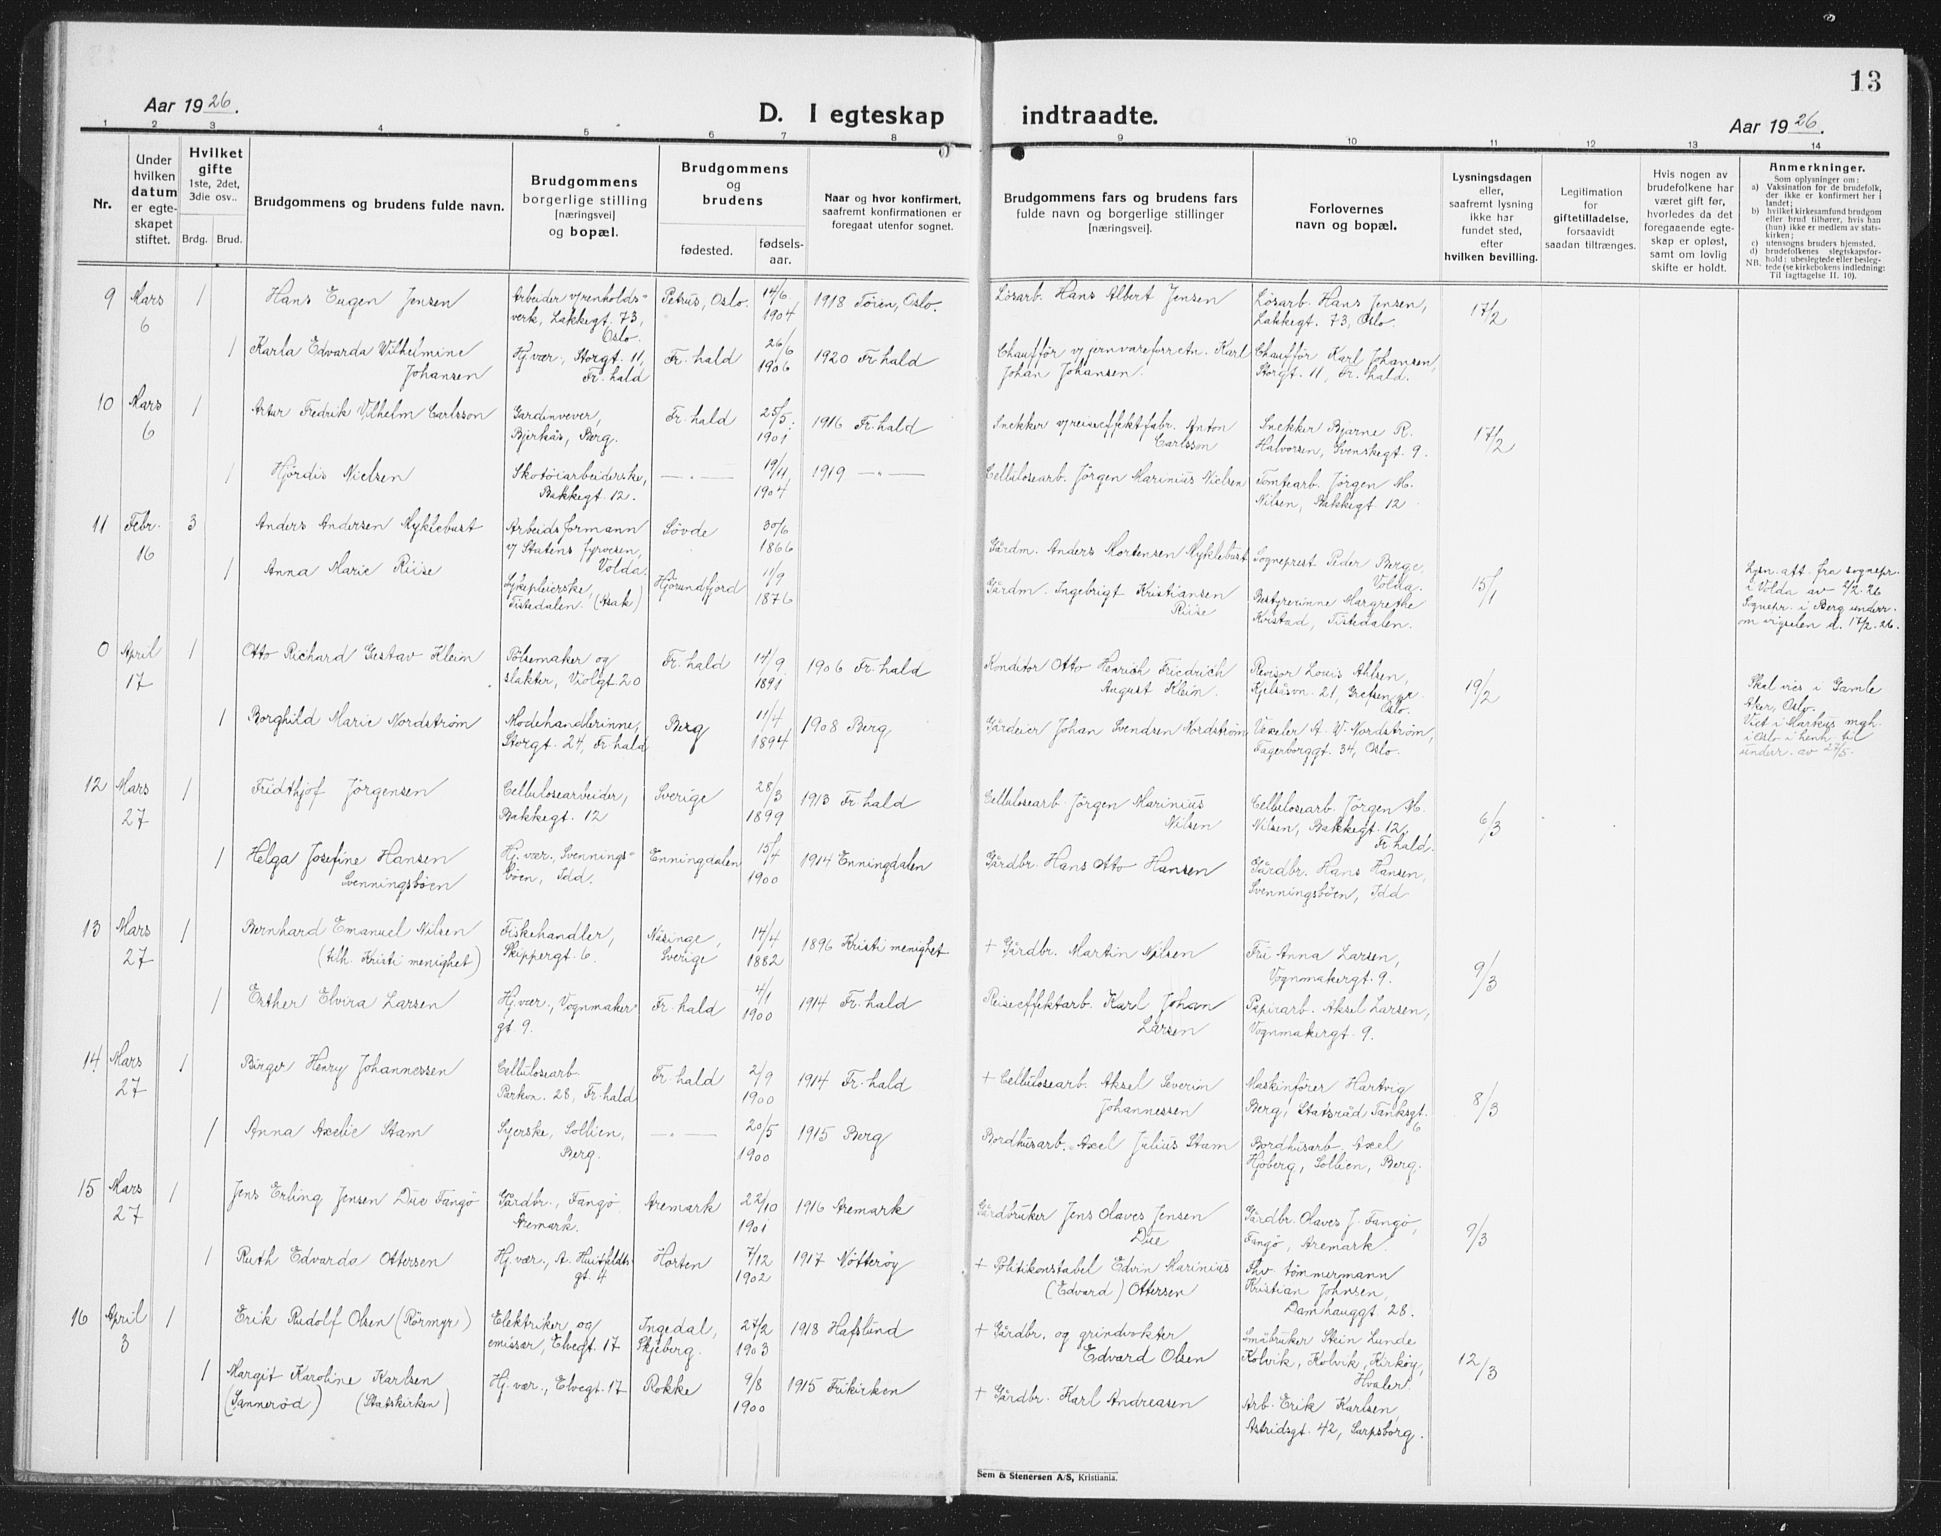 13
Aar 1926.
D. I egteskap indtraadte.
Aar 1926.
1 2 3 4 5 6 7 8 9 10 11 12 13 14
Nr.
Under hvilken datum er egteskapet stiftet.
Hvilket gifte 1ste, 2det, 3die osv..
Brdg. Brud.
Brudgommens og brudens fulde navn.
Brudgommens borgerlige stilling [næringsvei] og bopæl.
Brudgommens og brudens
fødested. fødselsaar.
Naar og hvor konfirmert, saafremt konfirmationen er foregaat utenfor sognet.
Brudgommens fars og brudens fars fulde navn og borgerlige stillinger [næringsvei].
Forlovernes navn og bopæl.
Lysningsdagen eller, saafremt lysning ikke har fundet sted, efter hvilken bevilling.
Legitimation for giftetilladelse, forsaavidt saadan tiltrænges.
Hvis nogen av brudefolkene har været gift før, hvorledes da det foregaaende egteskap er opløst, samt om lovlig skifte er holdt.
Anmerkninger.
Som oplysninger om:
a) Vaksination for de brudefolk, der ikke er konfirmert her i landet;
b) hvilket kirkesamfund brudgom eller brud tilhører, hvis han (hun) ikke er medlem av statskirken;
c) utensogns bruders hjemsted.
d) brudefolkenes slegtskapsforhold: ubeslegtede eller beslegtede (se kirkebokens indledning:
NB. Til iagttagelse II. 10).
9 Mars 6 1 Hans Eugen Jensen Arbeider v/renholdsverk, Lakkegt. 73, Oslo. Petrus, Oslo. 14/6 1904 1918 Töien, Oslo. Lösarb. Hans Albert Jensen Lösarb. Hans Jensen, Lakkegt. 73, Oslo. 17/2
1 Karla Edvarda Vilhelmine Johansen Hj.vær., Storgt. 11, Fr.hald Fr.hald 26/6 1906 1920 Fr.hald Chaufför v/jernvareforretn. Karl Johan Johansen. Chaufför Karl Johansen, Storgt. 11, Fr.hald.
10 Mars 6 1 Artur Fredrik Vilhelm Carlsson Gardinvever, Bjerkås, Berg. Fr.hald 25/5 1901 1916 Fr.hald Snekker v/reiseeffektfabr. Anton Carlsson Snekker Bjarne R. Halvorsen, Svenskegt. 9. 17/2
1 Hjördis Nielsen Skotöiarbeiderske, Bakkegt. 12. —"— 19/11 1904 1919 —"— Cellulosearb. Jörgen Marinius Nielsen Tomtearb. Jörgen M. Nilsen, Bakkegt. 12
11 Febr. 16 3 Anders Andersen Myklebust Arbeidsformann v/ Statens fyrvesen, Volda. Sövde 30/6 1866 Gårdm. Anders Mortensen Myklebust Sogneprest Peder Berge, Volda. 15/1
1 Anna Marie Riise Sykepleierske, Tistedalen. (Asak) Hjörundfjord 11/9 1876 Gårdm. Ingebrigt Kristiansen Riise Bestyrerinne Margrethe Korstad, Tistedalen.
Lysn. att. fra sognepr. i Volda av 6/2.26 Sognepr. i Berg underr. om vigselen d. 17/2.26.
0 April 17 1 Otto Richard Gustav Klein Pölsemaker og slakter, Violgt. 20 Fr.hald 14/9 1891 1906 Fr.hald Konditor Otto Henrich Friedrich August Klein. Revisor Louis Ahlsen, Kjelsåsvn. 21, Grefsen pr. Oslo. 19/2
1 Borghild Marie Nordström Modehandlerinne, Storgt. 24, Fr.hald Berg 11/4 1894 1908 Berg Gårdeier Johan Svendsen Nordström Vexeler A. W. Nordström, Fagerborggt. 34, Oslo.
Skal vies i Gamle Aker, Oslo. Viet i Markus mgh. i Oslo i henh. til underr. av 27/5.
12 Mars 27 1 Fridthjof Jörgensen Cellulosearbeider, Bakkegt. 12 Sverige 28/3 1899 1913 Fr.hald Cellulosearb. Jörgen Marinius Nilsen Cellulosearb. Jörgen M. Nilsen, Bakkegt. 12, Fr.hald. 6/3
1 Helga Josefine Hansen Svenningsböen Hj.vær., Svenningsböen, Idd. Enningdalen 15/4 1900 1914 Enningdalen Gårdbr. Hans Otto Hansen Gårdbr. Hans Hansen, Svenningsböen, Idd
13 Mars 27 1 Bernhard Emanuel Nilsen (tilh. Kristi menighet) Fiskehandler, Skippergt. 6. Näsinge, Sverige 14/4 1882 1896 Kristi menighet + Gårdbr. Martin Nilsen Fru Anna Larsen, Vognmakergt. 9. 9/3
1 Esther Elvira Larsen Hj.vær., Vognmakergt. 9. Fr.hald 4/1 1900 1914 Fr.hald Reiseeffektarb. Karl Johan Larsen Papirarb. Aksel Larsen, Vognmakergt. 9.
14 Mars 27 1 Birger Henry Johannessen Cellulosearb. Parkvn. 28, Fr.hald Fr.hald 2/9 1900 1914 Fr.hald + Cellulosearb. Aksel Severin Johannessen Maskinförer Hartvig Berg, Statsråd Tanksgt. 6 8/3
1 Anna Axelie Stam Syerske, Sollien, Berg. —"— 20/5 1900 1915 Berg Bordhusarb. Axel Julius Stam Bordhusarb. Axel Hjoberg, Sollien, Berg.
15 Mars 27 1 Jens Erling Jensen Due Fangö Gårdbr., Fangö, Aremark. Aremark 22/10 1901 1916 Aremark Gårdbruker Jens Olaves Jensen Due Gårdbr. Olaves J. Fangö, Fangö, Aremark. 9/3
1 Ruth Edvarda Ottersen Hj.vær., A. Huitfeldtsgt. 4 Horten 7/12 1902 1917 Nötteröy + Politikonstabel Edvin Marinius (Edvard) Ottersen Fhv. tömmermann Kristian Johnsen, Damhauggt. 28.
16 April 3 1 Erik Rudolf Olsen (Rörmyr) Elektriker og emissær, Elvegt. 17 Ingedal, Skjeberg. 27/2 1903 1918 Hafslund + Gårdbr. og grindvokter Edvard Olsen Småbruker Stein Lunde Kolvik, Kolvik, Kirköy, Hvaler. 12/3
1 Margit Karoline Karlsen (Sannerød) (Statskirken) Hj.vær., Elvegt. 17 Rokke 9/8 1900 1915 Frikirken + Gårdbr. Karl Andreasen Arb. Erik Karlsen Astridsgt. 42, Sarpsborg.
Sem & Stenersen A/S, Kristiania.